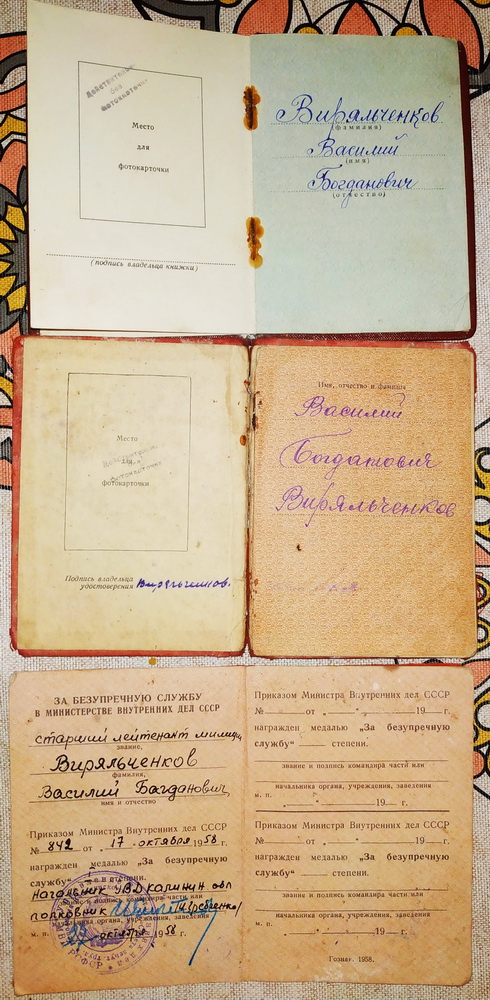 Действительно
без
фотокарточки
Место
для
фотокарточки
(подпись владельца книжки)
Виряльченков
(фамилия)
Василий
(имя)
Богданович
(отчество)
Место
для
фотокарточки
Действительно
без
фотокарточки
Подпись владельца
удостоверения Виряльченков.
Имя, отчество и фамилия
Василий
Богданович
Виряльченков
ЗА БЕЗУПРЕЧНУЮ СЛУЖБУ
В МИНИСТЕРСТВЕ ВНУТРЕННИХ ДЕЛ СССР
старший лейтенант милиции
звание,
Виряльченков
фамилия,
Василий Багданович
имя и отчество
Приказом Министра Внутренних дел СССР
№ 842 от „17“ октября 1958 г.
награжден медалью „За безупречную
службу“ степени.
начальник УВД калинин обл
звание и подпись командира части или
полковник
начальника органа, учреждения, заведения
м. п. октября 1958 г.
Приказом Министра Внутренних дел СССР
№ — от „ — “ — 19 — г.
награжден медалью „За безупречную
службу“ — степени.
звание и подпись командира части или
начальника органа, учреждения, заведения
м. п. „ — “ — 19 — г.
Приказом Министра Внутренних дел СССР
№ — от „ — “ — 19 — г.
награжден медалью „За безупречную
службу“ — степени.
звание и подпись командира части или
начальника органа, учреждения, заведения
м. п. „ — “ — 19 — г.
Гознак. 1958.